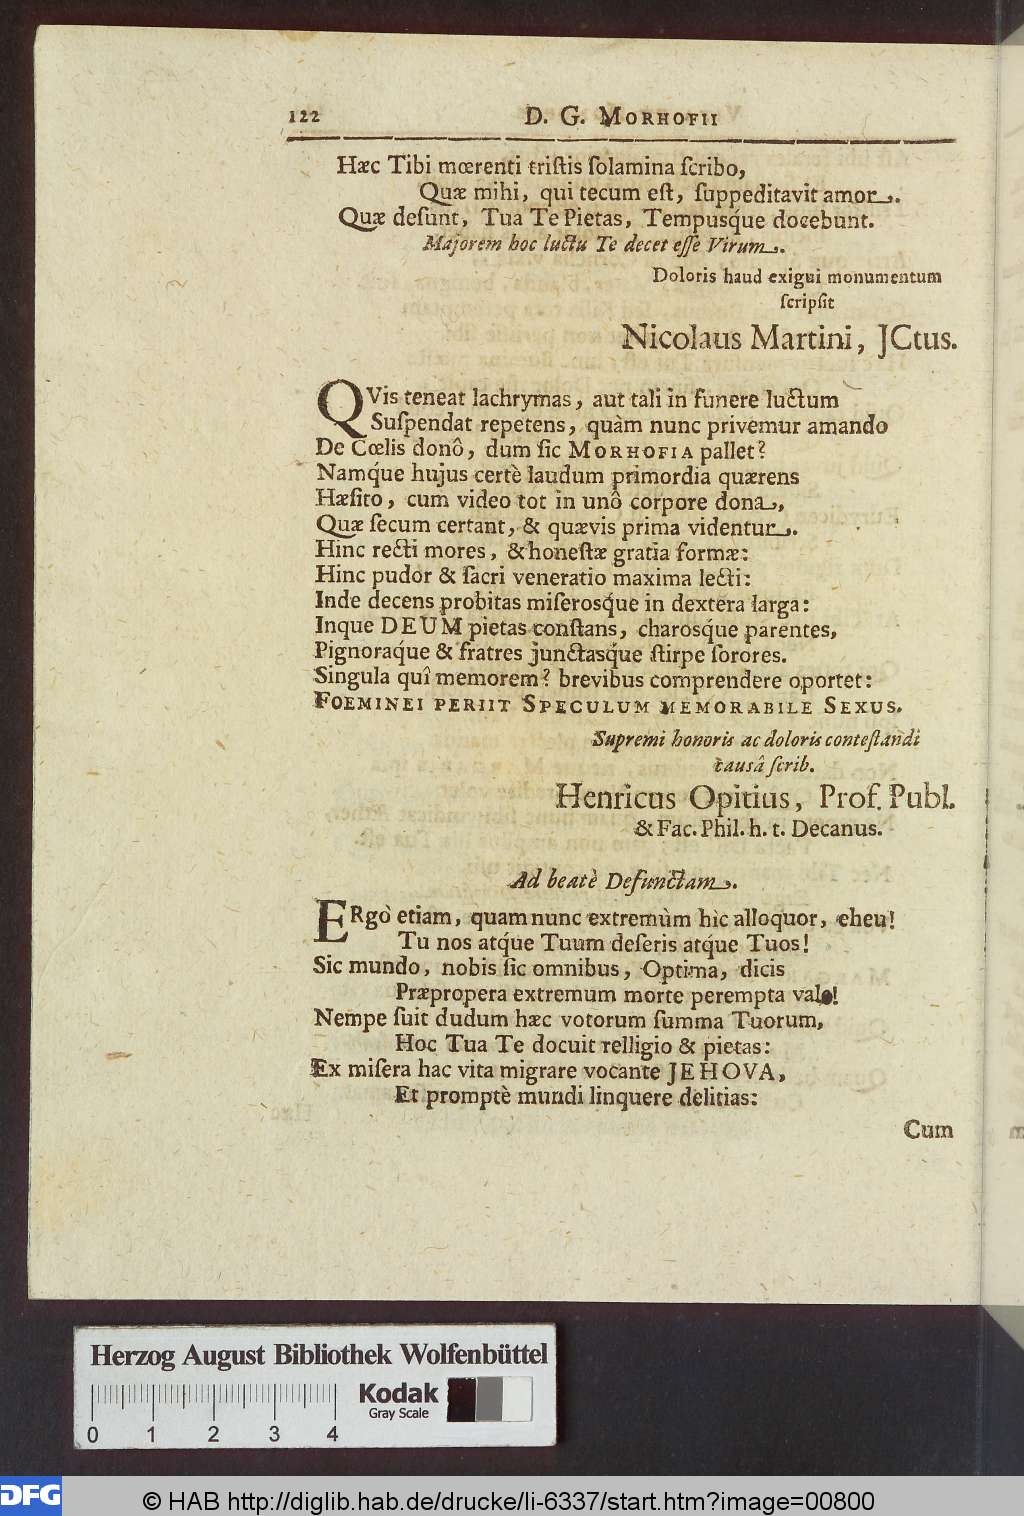 122 D. G. MORHOFII
Hæc Tibi mœrenti triſtis ſolamina ſcribo,
Quæ mihi, qui tecum eſt, ſuppeditavit amor.
Quæ deſunt, Tua Te Pietas, Tempusq́ue docebunt.
Majorem hoc luctu Te decet eſſe Virum.
Doloris haud exigui monumentum
ſcripſit
Nicolaus Martini, JCtus.
QVis teneat lachrymas, aut tali in funere luctum
Suſpendat repetens, quàm nunc privemur amando
De Cœlis donô, dum ſic MORHOFIA pallet?
Namq́ue hujus certè laudum primordia quærens
Hæſito, cum video tot in unô corpore dona,
Quæ ſecum certant, & quævis prima videntur.
Hinc recti mores, & honeſtæ gratia formæ:
Hinc pudor & ſacri veneratio maxima lecti:
Inde decens probitas miſerosq́ue in dextera larga:
Inque DEUM pietas conſtans, charosq́ue parentes,
Pignoraq́ue & fratres junctasq́ue ſtirpe ſorores.
Singula quî memorem? brevibus comprendere oportet:
FOEMINEI PERIIT SPECULUM MEMORABILE SEXUS.
Supremi honoris ac doloris conteſtandi
causâ ſcrib.
Henricus Opitius, Prof. Publ.
& Fac. Phil. h. t. Decanus.
Ad beatè Defunctam.
ERgò etiam, quam nunc extremùm hìc alloquor, eheu!
Tu nos atq́ue Tuum deſeris atq́ue Tuos!
Sic mundo, nobis ſic omnibus, Optima, dicis
Præpropera extremum morte perempta vale!
Nempe fuit dudum hæc votorum ſumma Tuorum,
Hoc Tua Te docuit relligio & pietas:
Ex miſera hac vita migrare vocante JEHOVA,
Et promptè mundi linquere delitias:
Cum
Herzog August Bibliothek Wolfenbüttel
Kodak
Gray Scale
0 1 2 3 4
DFG
© HAB http://diglib.hab.de/drucke/li-6337/start.htm?image=00800